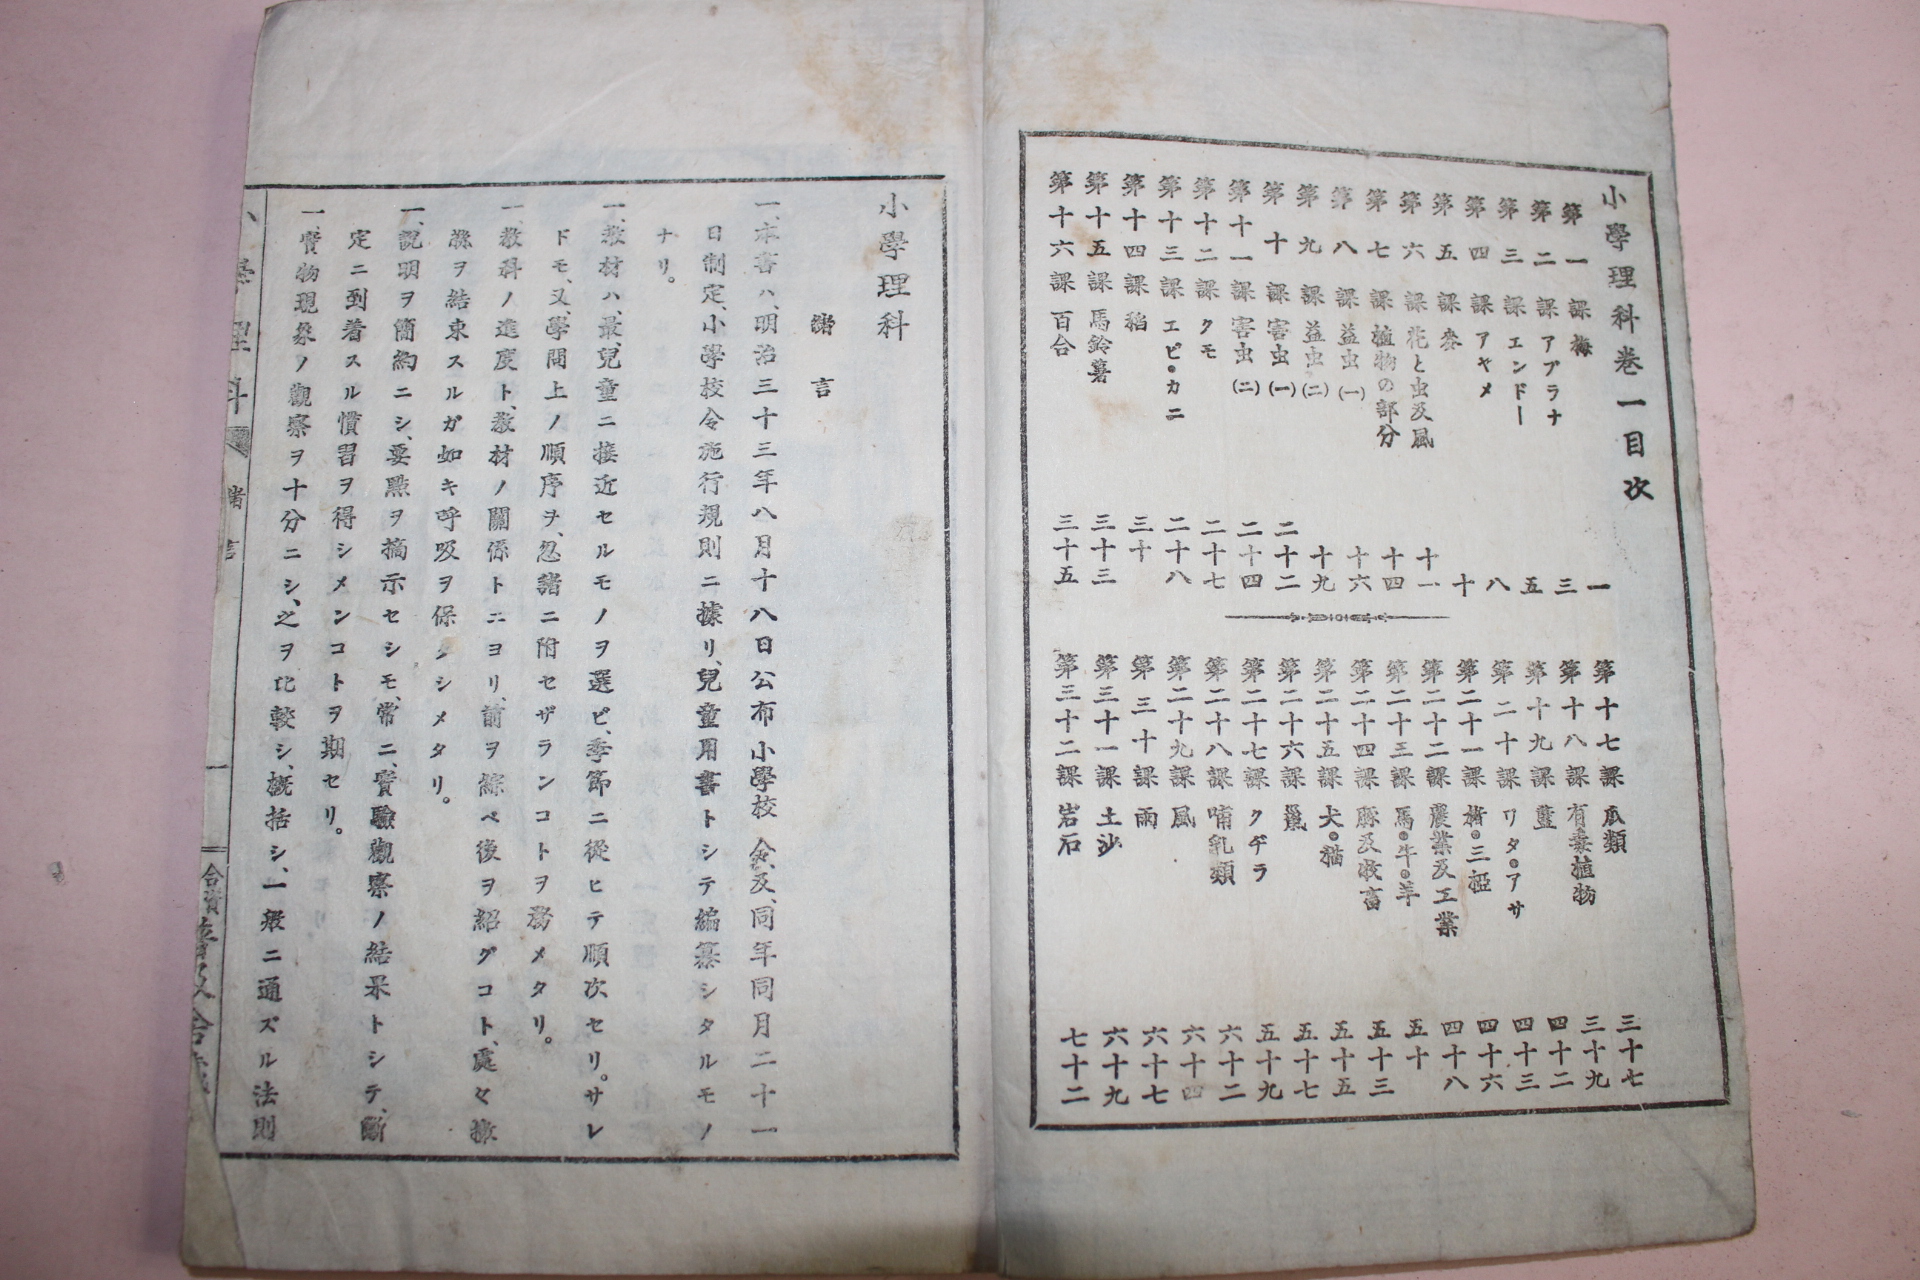 小學理科卷一目次
第一課 梅 一
第二課 アブラナ 三
第三課 エンドー 五
第四課 アヤメ 八
第五課 麥 十
第六課 花と虫及風 十一
第七課 植物の部分 十四
第八課 益虫(一) 十六
第九課 益虫(二) 十九
第十課 害虫(一) 二十二
第十一課 害虫(二) 二十四
第十二課 クモ 二十七
第十三課 エビ・カニ 二十八
第十四課 稻 三十
第十五課 馬鈴薯 三十三
第十六課 百合 三十五
第十七課 瓜類 三十七
第十八課 有毒植物 三十九
第十九課 藍 四十二
第二十課 ワタ・アサ 四十三
第二十一課 楮・三椏 四十六
第二十二課 農業及工業 四十八
第二十三課 馬・牛・羊 五十
第二十四課 豚及牧畜 五十三
第二十五課 犬・猫 五十五
第二十六課 鼠 五十七
第二十七課 クヂラ 五十九
第二十八課 哺乳類 六十二
第二十九課 風 六十四
第三十課 雨 六十七
第三十一課 土沙 六十九
第三十二課 岩石 七十二
小學理科
緒言
一、本書ハ、明治三十三年八月十八日公布小學校令、及、同年同月二十一
日制定、小學校令施行規則ニ據リ、兒童用書トシテ編纂シタルモノ
ナリ。
一、教材ハ、最、兒童ニ接近セルモノヲ選ビ、季節ニ從ヒテ順次セリ。サレ
ドモ、又、學問上ノ順序ヲ、忽諸ニ附セザランコトヲ務メタリ。
一、教科ノ進度ト、教材ノ關係トニヨリ、前ヲ綜ベ後ヲ紹グコト、處々
ヲ結束スルガ如キ呼吸ヲ保タシメタリ。
一、説明ヲ簡約ニシ、要點ヲ摘示セシモ、常ニ、實驗觀察ノ結果トシテ、斷
定ニ到着スル慣習ヲ得シメンコトヲ期セリ。
一、實物現象ノ觀察ヲ十分ニシ、之ヲ比較シ、概括シ、一般ニ通ズル法則
小學理科 緒言 一 合資